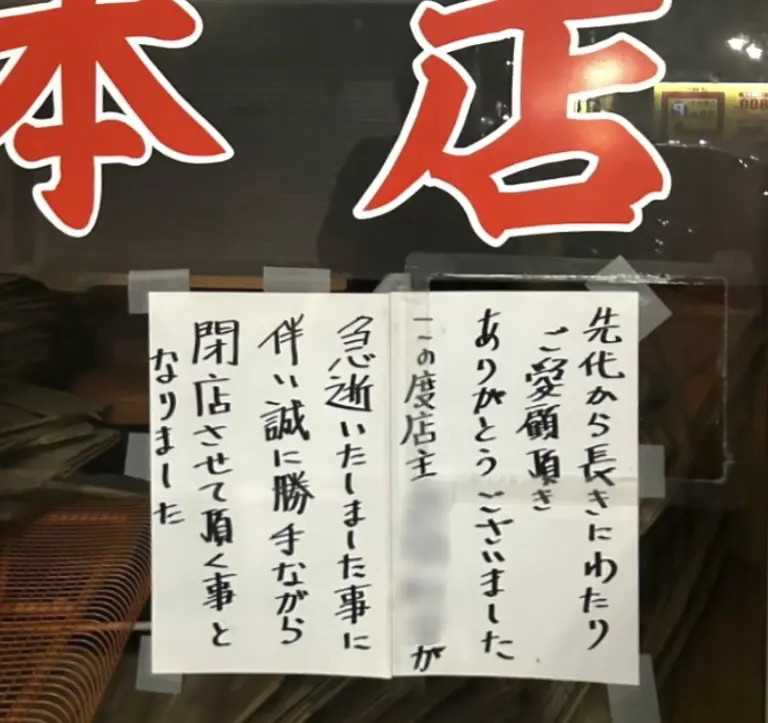 本店
先代から長きにわたり
ご愛顧頂き
ありがとうございました
この度店主
が
急逝いたしました事に
伴い誠に勝手ながら
閉店させて頂く事と
なりました